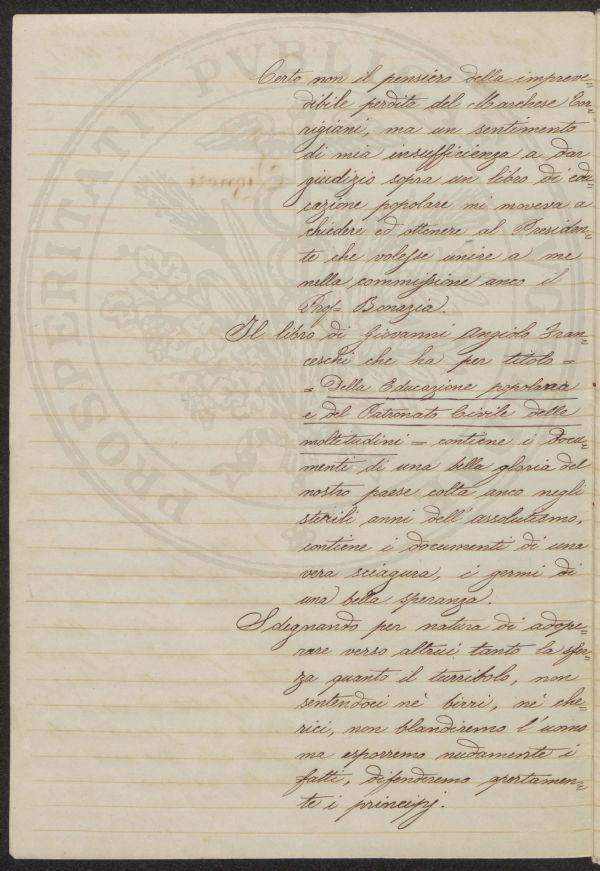 Certo non il pensiero della impreve=
dibile perdita del Marchese Tor=
rigiani, ma un sentimento
di mia insufficienza a dar
giudizio sopra un libro di edu=
cazione popolare mi moveva a
chiedere ed ottenere al Presiden=
te che volesse unire a me
nella commissione anco il
Prof= Bonazia.
Il libro di Giovanni Angiolo Fran=
ceschi che ha per titolo =
= Della Educazione popolare
e del Patronato Civile delle
moltitudini = contiene i docu=
menti di una bella gloria del
nostro paese colta anco negli
sterili anni dell'assolutismo,
contiene i documenti di una
vera sciagura, i germi di
una bella speranza.
Sdegnando per natura di adope=
rare verso altrui tanto la sfer=
za quanto il turribolo, non
sentendoci nè birri, nè che=
rici, non blandiremo l'uomo
ma esporremo nudamente i
fatti, difenderemo apertamen=
te i principj.
PROSPERITATI PVBLICAE